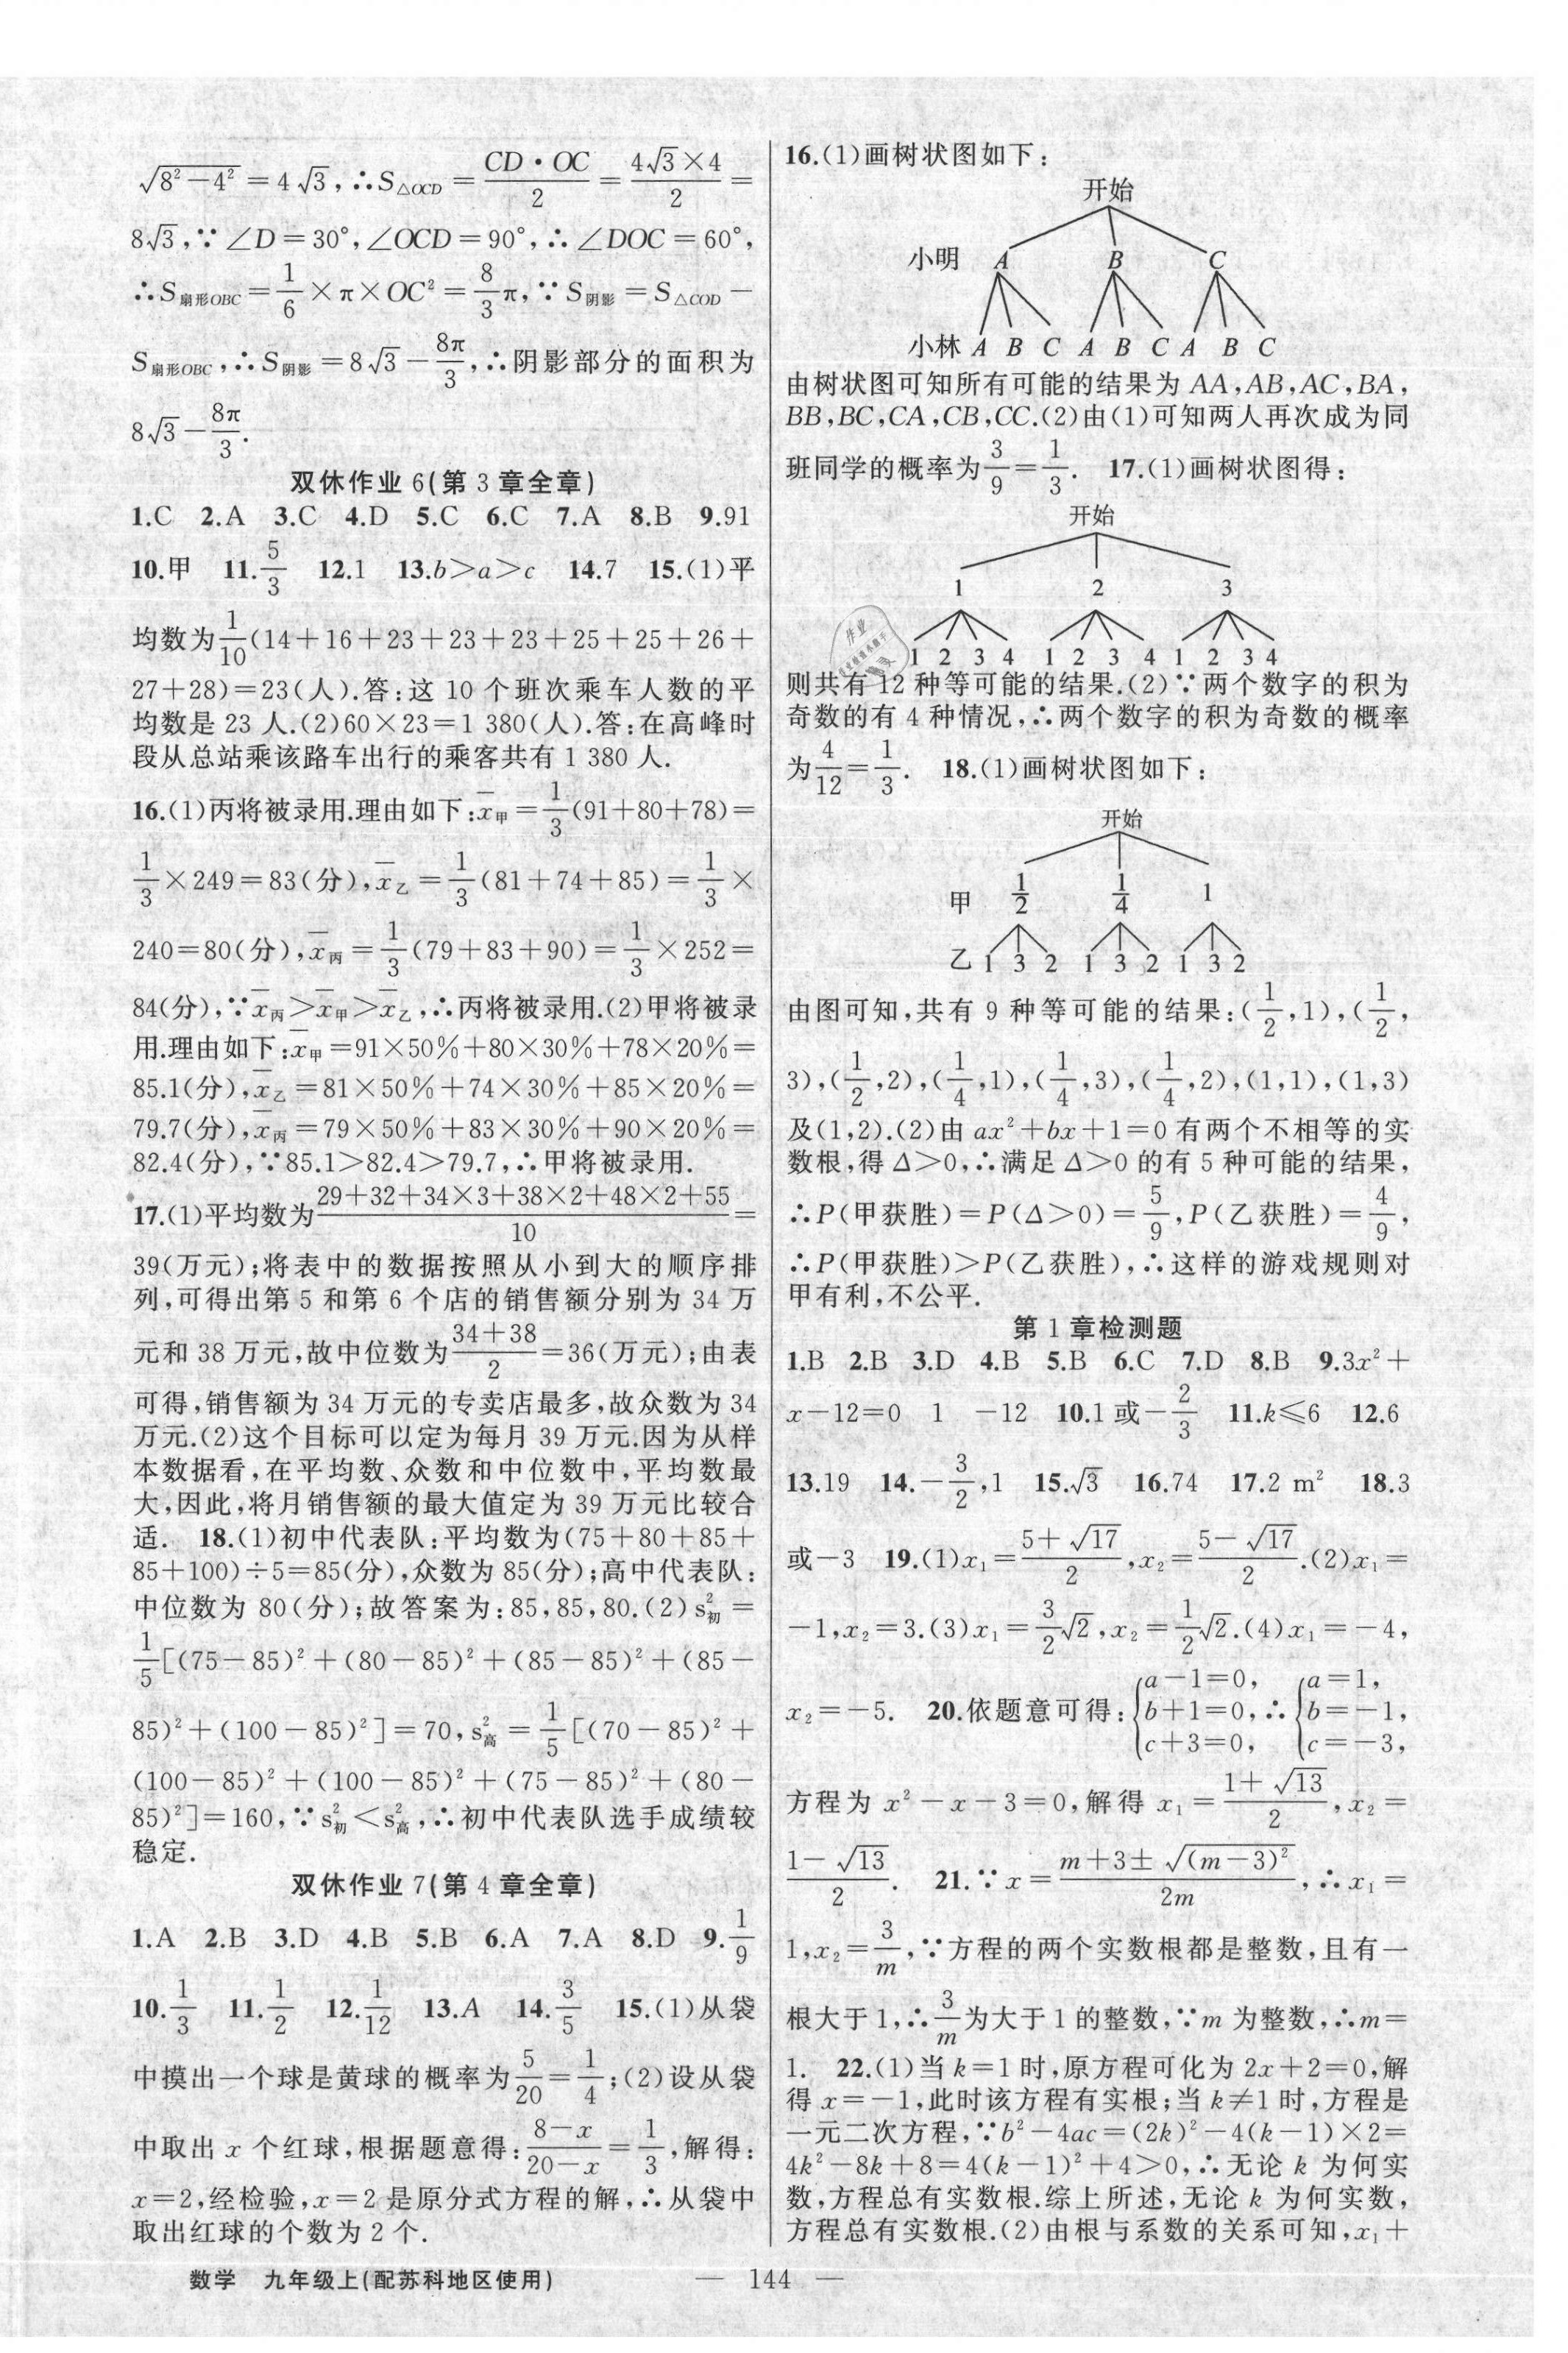 √(8²−4²)=4√3,∴S△OCD=CD·OC/2=4√3×4/2=
8√3,∵∠D=30°,∠OCD=90°,∴∠DOC=60°,
∴S扇形OBC=1/6×π×OC²=8/3π,∵S阴影=S△COD−
S扇形OBC,∴S阴影=8√3−8π/3,∴阴影部分的面积为
8√3−8π/3.
双休作业6(第3章全章)
1.C 2.A 3.C 4.D 5.C 6.C 7.A 8.B 9.91
10.甲 11.5/3 12.1 13.b>a>c 14.7 15.(1)平
均数为1/10(14+16+23+23+23+25+25+26+
27+28)=23(人).答:这10个班次乘车人数的平
均数是23人.(2)60×23=1 380(人).答:在高峰时
段从总站乘该路车出行的乘客共有1 380人.
16.(1)丙将被录用.理由如下:x̄甲=1/3(91+80+78)=
1/3×249=83(分),x̄乙=1/3(81+74+85)=1/3×
240=80(分),x̄丙=1/3(79+83+90)=1/3×252=
84(分),∵x̄丙>x̄甲>x̄乙,∴丙将被录用.(2)甲将被录
用.理由如下:x̄甲=91×50%+80×30%+78×20%=
85.1(分),x̄乙=81×50%+74×30%+85×20%=
79.7(分),x̄丙=79×50%+83×30%+90×20%=
82.4(分),∵85.1>82.4>79.7,∴甲将被录用.
17.(1)平均数为(29+32+34×3+38×2+48×2+55)/10=
39(万元);将表中的数据按照从小到大的顺序排
列,可得出第5和第6个店的销售额分别为34万
元和38万元,故中位数为(34+38)/2=36(万元);由表
可得,销售额为34万元的专卖店最多,故众数为34
万元.(2)这个目标可以定为每月39万元.因为从样
本数据看,在平均数、众数和中位数中,平均数最
大,因此,将月销售额的最大值定为39万元比较合
适. 18.(1)初中代表队:平均数为(75+80+85+
85+100)÷5=85(分),众数为85(分);高中代表队:
中位数为80(分);故答案为:85,85,80.(2)s²初=
1/5[(75−85)²+(80−85)²+(85−85)²+(85−
85)²+(100−85)²]=70,s²高=1/5[(70−85)²+
(100−85)²+(100−85)²+(75−85)²+(80−
85)²]=160,∵s²初<s²高,∴初中代表队选手成绩较
稳定.
双休作业7(第4章全章)
1.A 2.B 3.D 4.B 5.B 6.A 7.A 8.D 9.1/9
10.1/3 11.1/2 12.1/12 13.A 14.3/5 15.(1)从袋
中摸出一个球是黄球的概率为5/20=1/4;(2)设从袋
中取出x个红球,根据题意得:(8−x)/(20−x)=1/3,解得:
x=2,经检验,x=2是原分式方程的解,∴从袋中
取出红球的个数为2个.
16.(1)画树状图如下:
开始
小明 A B C
小林 A B C A B C A B C
由树状图可知所有可能的结果为AA,AB,AC,BA,
BB,BC,CA,CB,CC.(2)由(1)可知两人再次成为同
班同学的概率为3/9=1/3. 17.(1)画树状图得:
开始
1 2 3
1 2 3 4 1 2 3 4 1 2 3 4
则共有12种等可能的结果.(2)∵两个数字的积为
奇数的有4种情况,∴两个数字的积为奇数的概率
为4/12=1/3. 18.(1)画树状图如下:
开始
甲 1/2 1/4 1
乙 1 3 2 1 3 2 1 3 2
由图可知,共有9种等可能的结果:(1/2,1),(1/2,
3),(1/2,2),(1/4,1),(1/4,3),(1/4,2),(1,1),(1,3)
及(1,2).(2)由ax²+bx+1=0有两个不相等的实
数根,得Δ>0,∴满足Δ>0的有5种可能的结果,
∴P(甲获胜)=P(Δ>0)=5/9,P(乙获胜)=4/9,
∴P(甲获胜)>P(乙获胜),∴这样的游戏规则对
甲有利,不公平.
第1章检测题
1.B 2.B 3.D 4.B 5.B 6.C 7.D 8.B 9.3x²+
x−12=0 1 −12 10.1或−2/3 11.k≤6 12.6
13.19 14.−3/2,1 15.√3 16.74 17.2 m² 18.3
或−3 19.(1)x₁=(5+√17)/2,x₂=(5−√17)/2.(2)x₁=
−1,x₂=3.(3)x₁=3/2√2,x₂=1/2√2.(4)x₁=−4,
x₂=−5. 20.依题意可得:{a−1=0, b+1=0, c+3=0,∴{a=1, b=−1, c=−3,
方程为x²−x−3=0,解得x₁=(1+√13)/2,x₂=
(1−√13)/2. 21.∵x=(m+3±√(m−3)²)/2m,∴x₁=
1,x₂=3/m,∵方程的两个实数根都是整数,且有一
根大于1,∴3/m为大于1的整数,∵m为整数,∴m=
1. 22.(1)当k=1时,原方程可化为2x+2=0,解
得x=−1,此时该方程有实根;当k≠1时,方程是
一元二次方程,∵b²−4ac=(2k)²−4(k−1)×2=
4k²−8k+8=4(k−1)²+4>0,∴无论k为何实
数,方程总有实数根.综上所述,无论k为何实数,
方程总有实数根.(2)由根与系数的关系可知,x₁+
数学 九年级上(配苏科地区使用) — 144 —